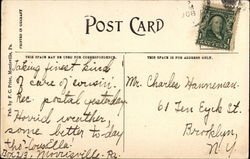 POST CARD
THIS SPACE MAY BE USED FOR CORRESPONDENCE.
THIS SPACE IS FOR ADDRESS ONLY.
PRINTED IN GERMANY
Pub. by F. C. Price, Morrisville, Pa.
Taking finest kind
of care of cousin.
Rec. postal yesterday
Horrid weather,
some better to-day
Morrisville - Pa.
Mr. Charles Hanneman
61 Ten Eyck St.
Brooklyn,
N.Y.